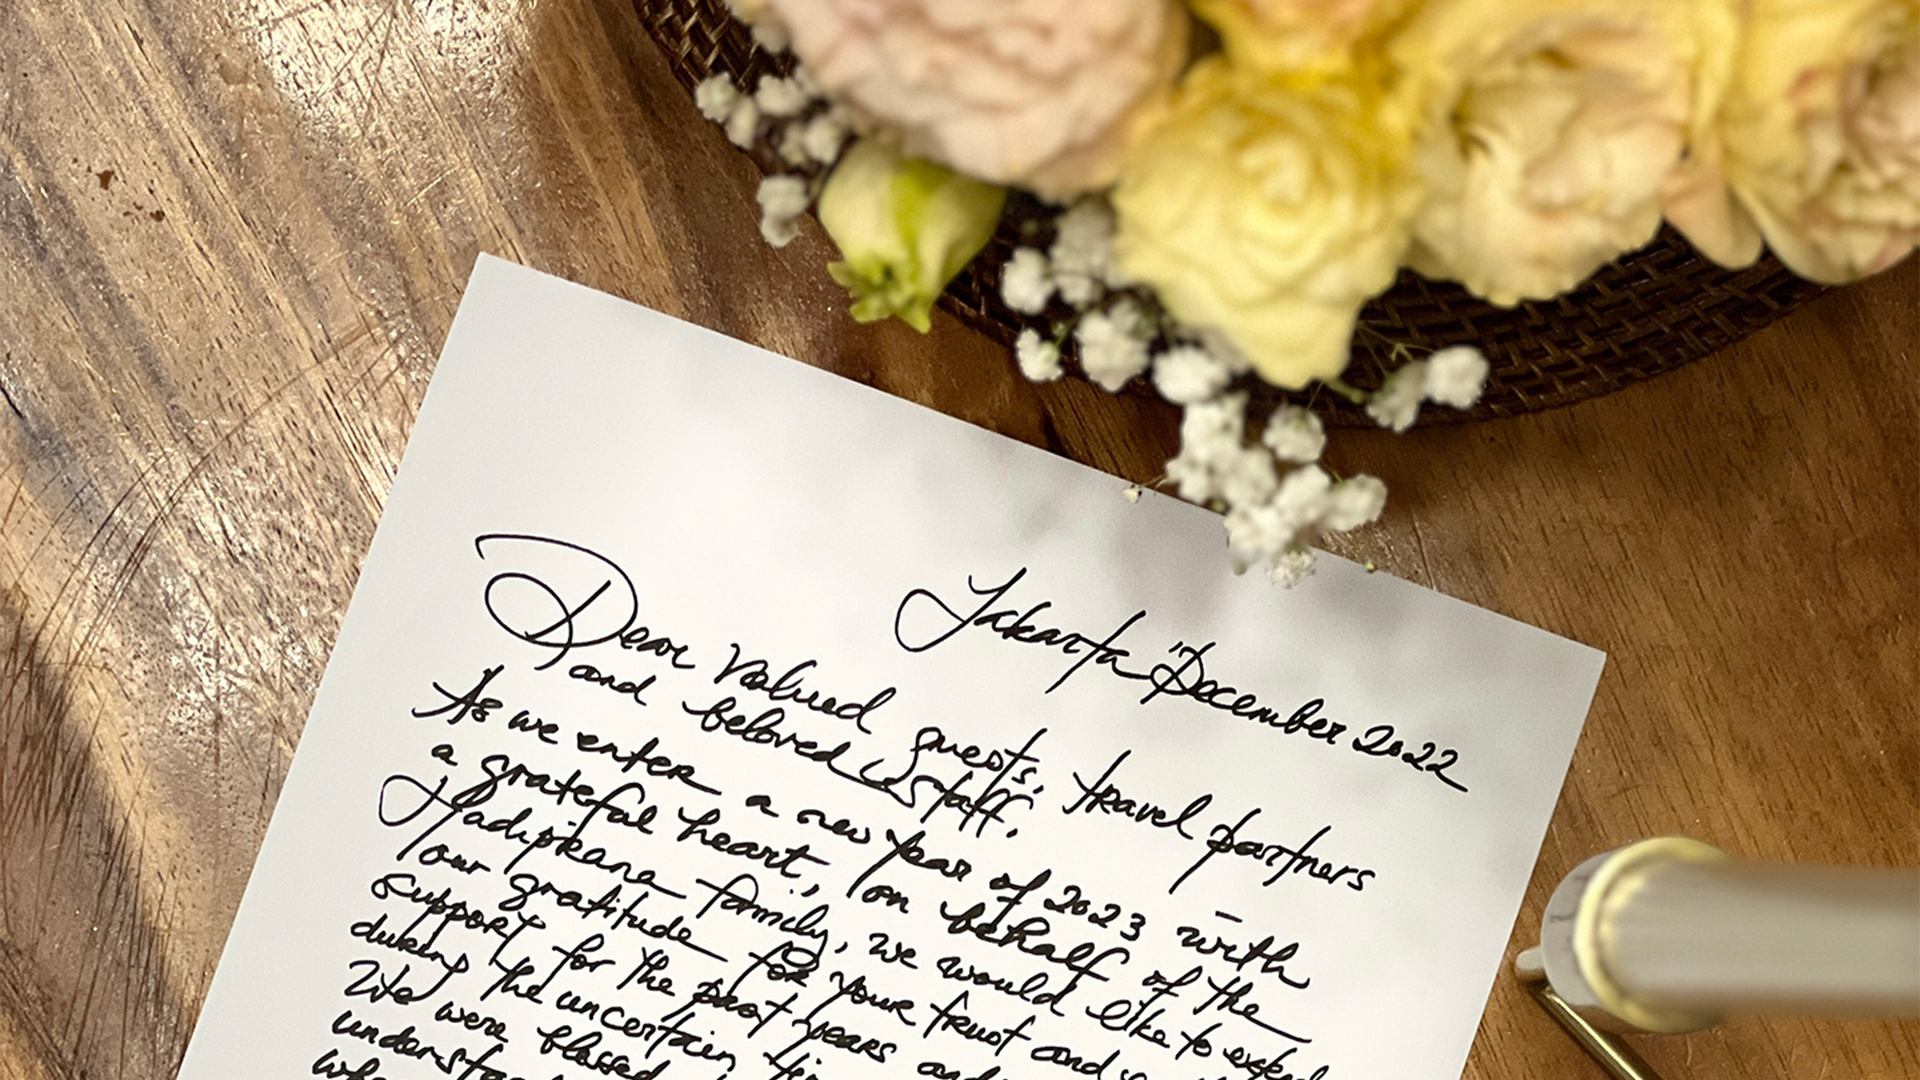 Jakarta December 2022
Dear Valued guests, travel partners
and beloved Staff.
As we enter a new year of 2023 with
a grateful heart, on behalf of the
Hadiprana family, we would like to extend
our gratitude for your trust and
support for the past years and
during the uncertain
We were blessed